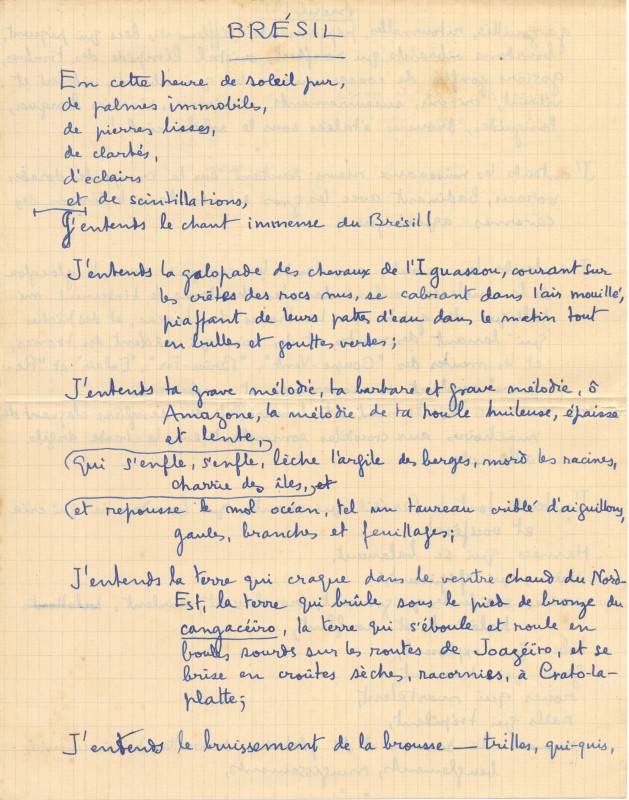 BRÉSIL
En cette heure de soleil pur,
de palmes immobiles,
de pierres lisses,
de clartés,
d'éclairs
et de scintillations,
J'entends le chant immense du Brésil!
J'entends la galopade des chevaux de l'Iguassou, courant sur
les crêtes des rocs nus, se cabrant dans l'air mouillé,
piaffant de leurs pattes d'eau dans le matin tout
en bulles et gouttes vertes;
J'entends ta grave mélodie, ta barbare et grave mélodie, ô
Amazone, la mélodie de ta houle huileuse, épaisse
et lente,
qui s'enfle, s'enfle, lèche l'argile des berges, mord les racines,
charrie des îles, et
et repousse le mol océan, tel un taureau criblé d'aiguillons,
gaules, branches et feuillages;
J'entends la terre qui craque dans le ventre chaud du Nord-
Est, la terre qui brûle sous le pied de bronze du
cangacéïro, la terre qui s'éboule et roule en
boules sourds sur les routes de Joazéïro, et se
brise en croûtes sèches, racornies, à Crato-la-
platte;
J'entends le bruissement de la brousse — trilles, qui-quis,